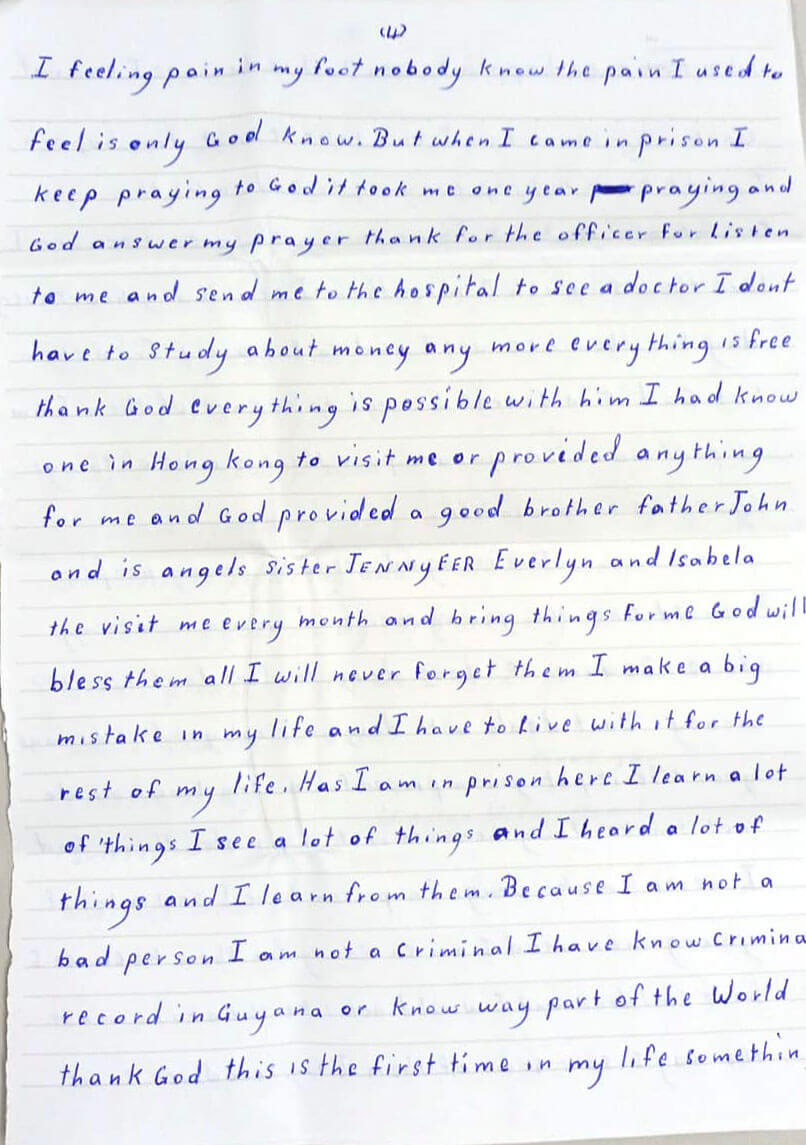 (4)
I feeling pain in my foot nobody know the pain I used to
feel is only God know. But when I came in prison I
keep praying to God it took me one year praying and
God answer my prayer thank for the officer for listen
to me and send me to the hospital to see a doctor I dont
have to study about money any more everything is free
thank God everything is possible with him I had know
one in Hong kong to visit me or provided anything
for me and God provided a good brother father John
and is angels sister JENNYFER Everlyn and Isabela
the visit me every month and bring things for me God will
bless them all I will never forget them I make a big
mistake in my life and I have to live with it for the
rest of my life. Has I am in prison here I learn a lot
of things I see a lot of things and I heard a lot of
things and I learn from them. Because I am not a
bad person I am not a criminal I have know crimina
record in Guyana or know way part of the World
thank God this is the first time in my life somethin